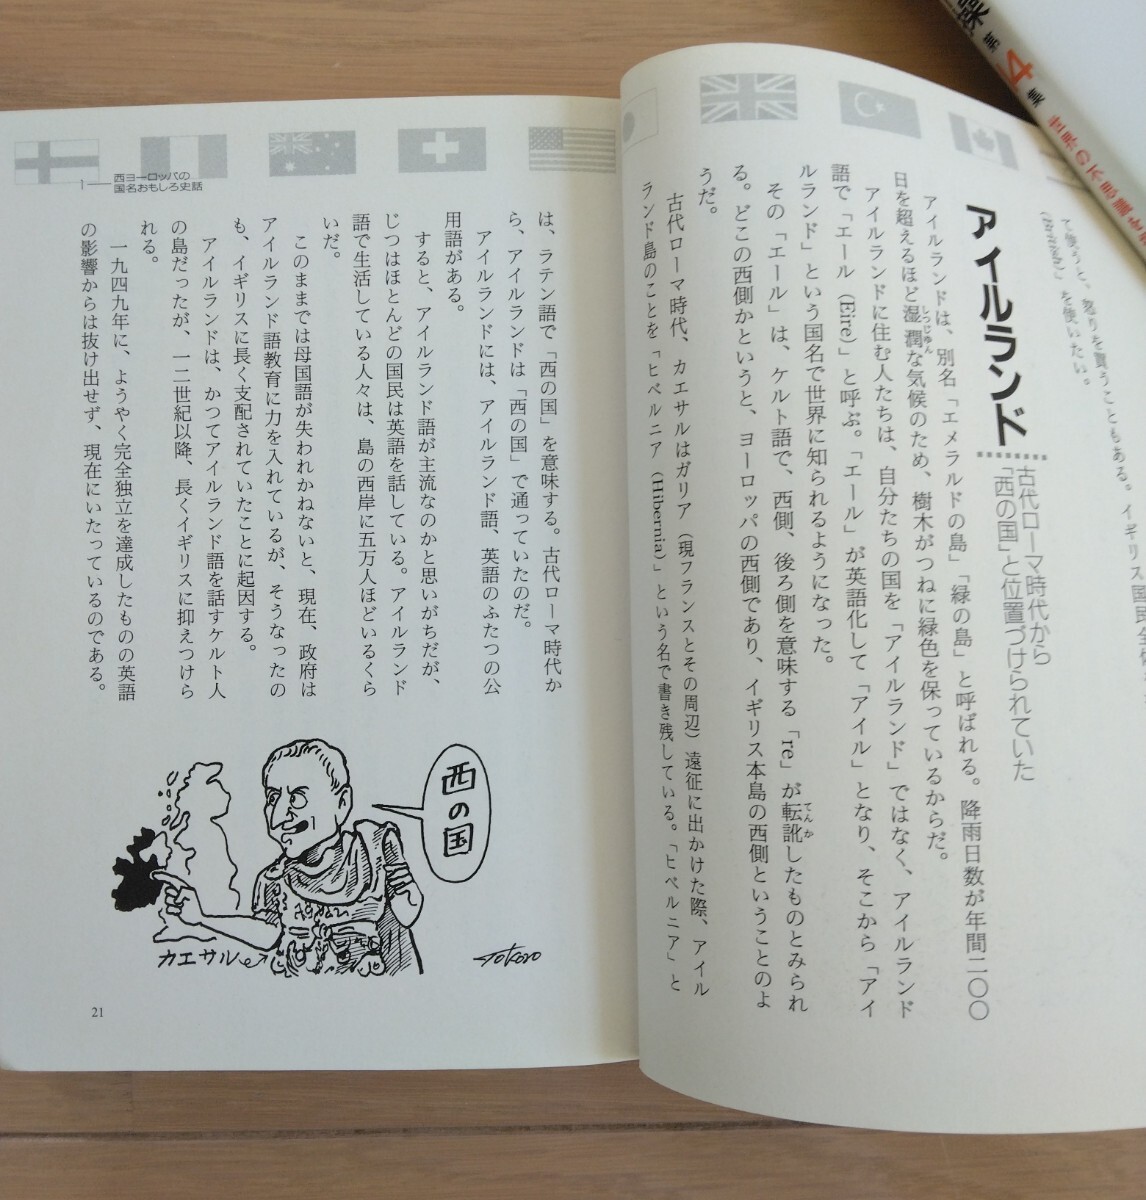 て使うと、怒りを買うこともある。イギリス国民全体
(British)」を使いたい。
アイルランド
古代ローマ時代から
「西の国」と位置づけられていた
アイルランドは、別名「エメラルドの島」「緑の島」と呼ばれる。降雨日数が年間二〇〇
日を超えるほど湿潤な気候のため、樹木がつねに緑色を保っているからだ。
しつじゆん
アイルランドに住む人たちは、自分たちの国を「アイルランド」ではなく、アイルランド
語で「エール（Eire）」と呼ぶ。「エール」が英語化して「アイル」となり、そこから「アイ
ルランド」という国名で世界に知られるようになった。
その「エール」は、ケルト語で、西側、後ろ側を意味する「Ire」が転訛したものとみられ
てんか
る。どこの西側かというと、ヨーロッパの西側であり、イギリス本島の西側ということのよ
うだ。
古代ローマ時代、カエサルはガリア（現フランスとその周辺）遠征に出かけた際、アイル
ランド島のことを「ヒベルニア（Hibernia）」という名で書き残している。「ヒベルニア」と
1――西ヨーロッパの
国名おもしろ史話
は、ラテン語で「西の国」を意味する。古代ローマ時代か
ら、アイルランドは「西の国」で通っていたのだ。
アイルランドには、アイルランド語、英語のふたつの公
用語がある。
すると、アイルランド語が主流なのかと思いがちだが、
じつはほとんどの国民は英語を話している。アイルランド
語で生活している人々は、島の西岸に五万人ほどいるくら
いだ。
このままでは母国語が失われかねないと、現在、政府は
アイルランド語教育に力を入れているが、そうなったの
も、イギリスに長く支配されていたことに起因する。
アイルランドは、かつてアイルランド語を話すケルト人
の島だったが、一二世紀以降、長くイギリスに抑えつけら
れる。
一九四九年に、ようやく完全独立を達成したものの英語
の影響からは抜け出せず、現在にいたっているのである。
西の国
カエサル
TOKORO
21
第4集